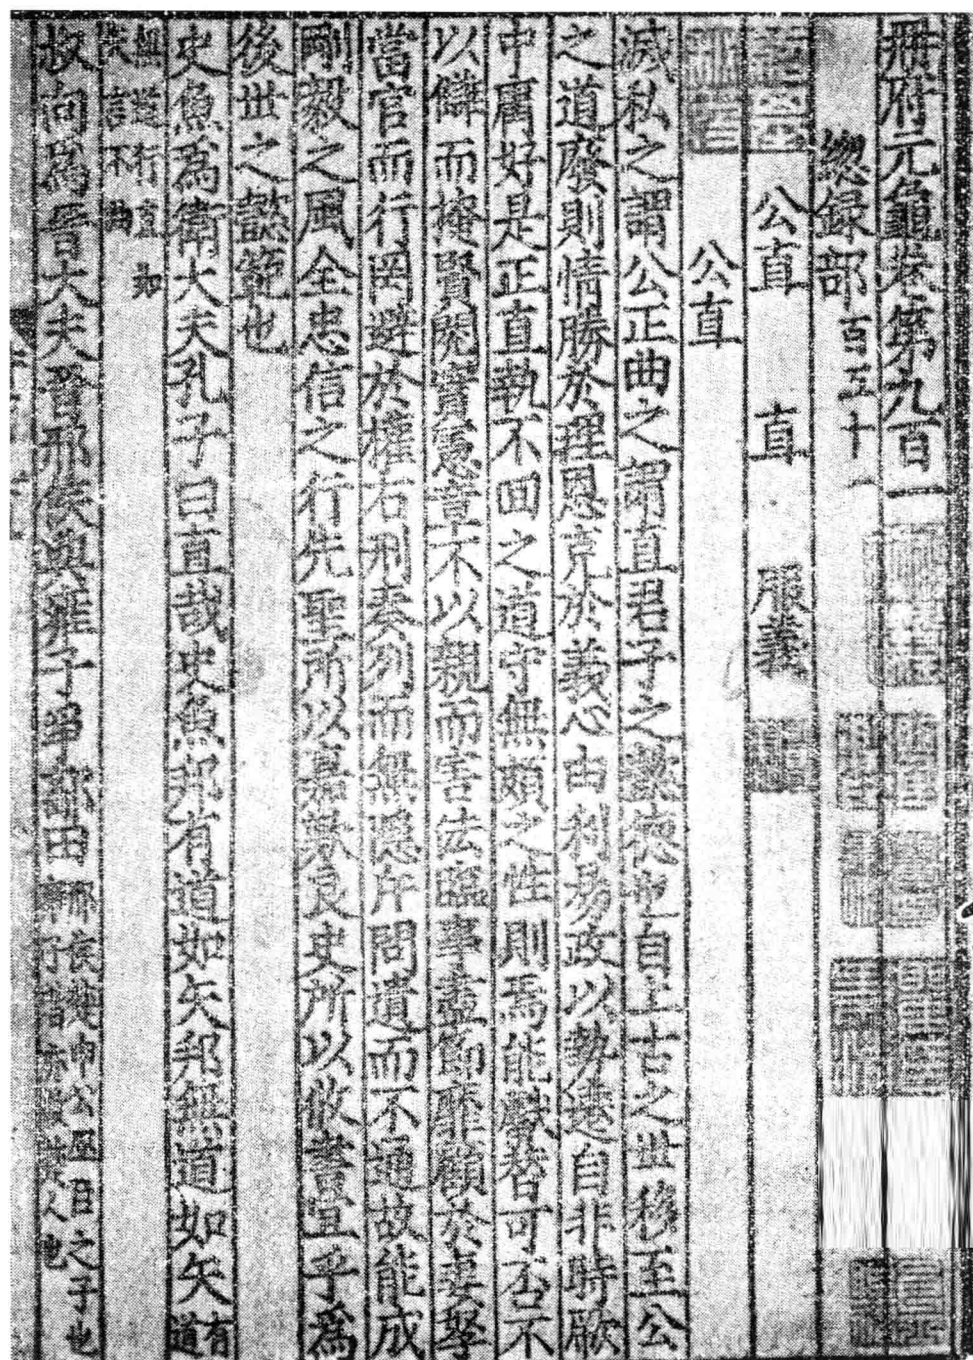 册府元龜卷第九百一
總録部百五十一
公直　直　服義
公直
滅私之謂公正曲之謂直君子之懿德也自上古之世移至公
之道廢則情勝於理恩㤀於義心由利易政以勢遷自非時厥
中庸好是正直執不回之道守無頗之性則焉能獻替可否不
以讎而掩賢閱實急章不以親而害法臨事盡節靡顧於妻孥
當官而行罔避於權右刑奏列而無隱斥問遺而不通故能成
剛毅之風全忠信之行先聖所以嘉歎良史所以徽蓋宜乎爲
後世之懿範也
史魚爲衛大夫孔子曰直哉史魚邦有道如矢邦無道如矢有道
無道行直如矢言不曲
叔向爲晉大夫晉邢侯與雍子爭鄐田邢侯楚申公巫臣之子也雍子亦故楚人也